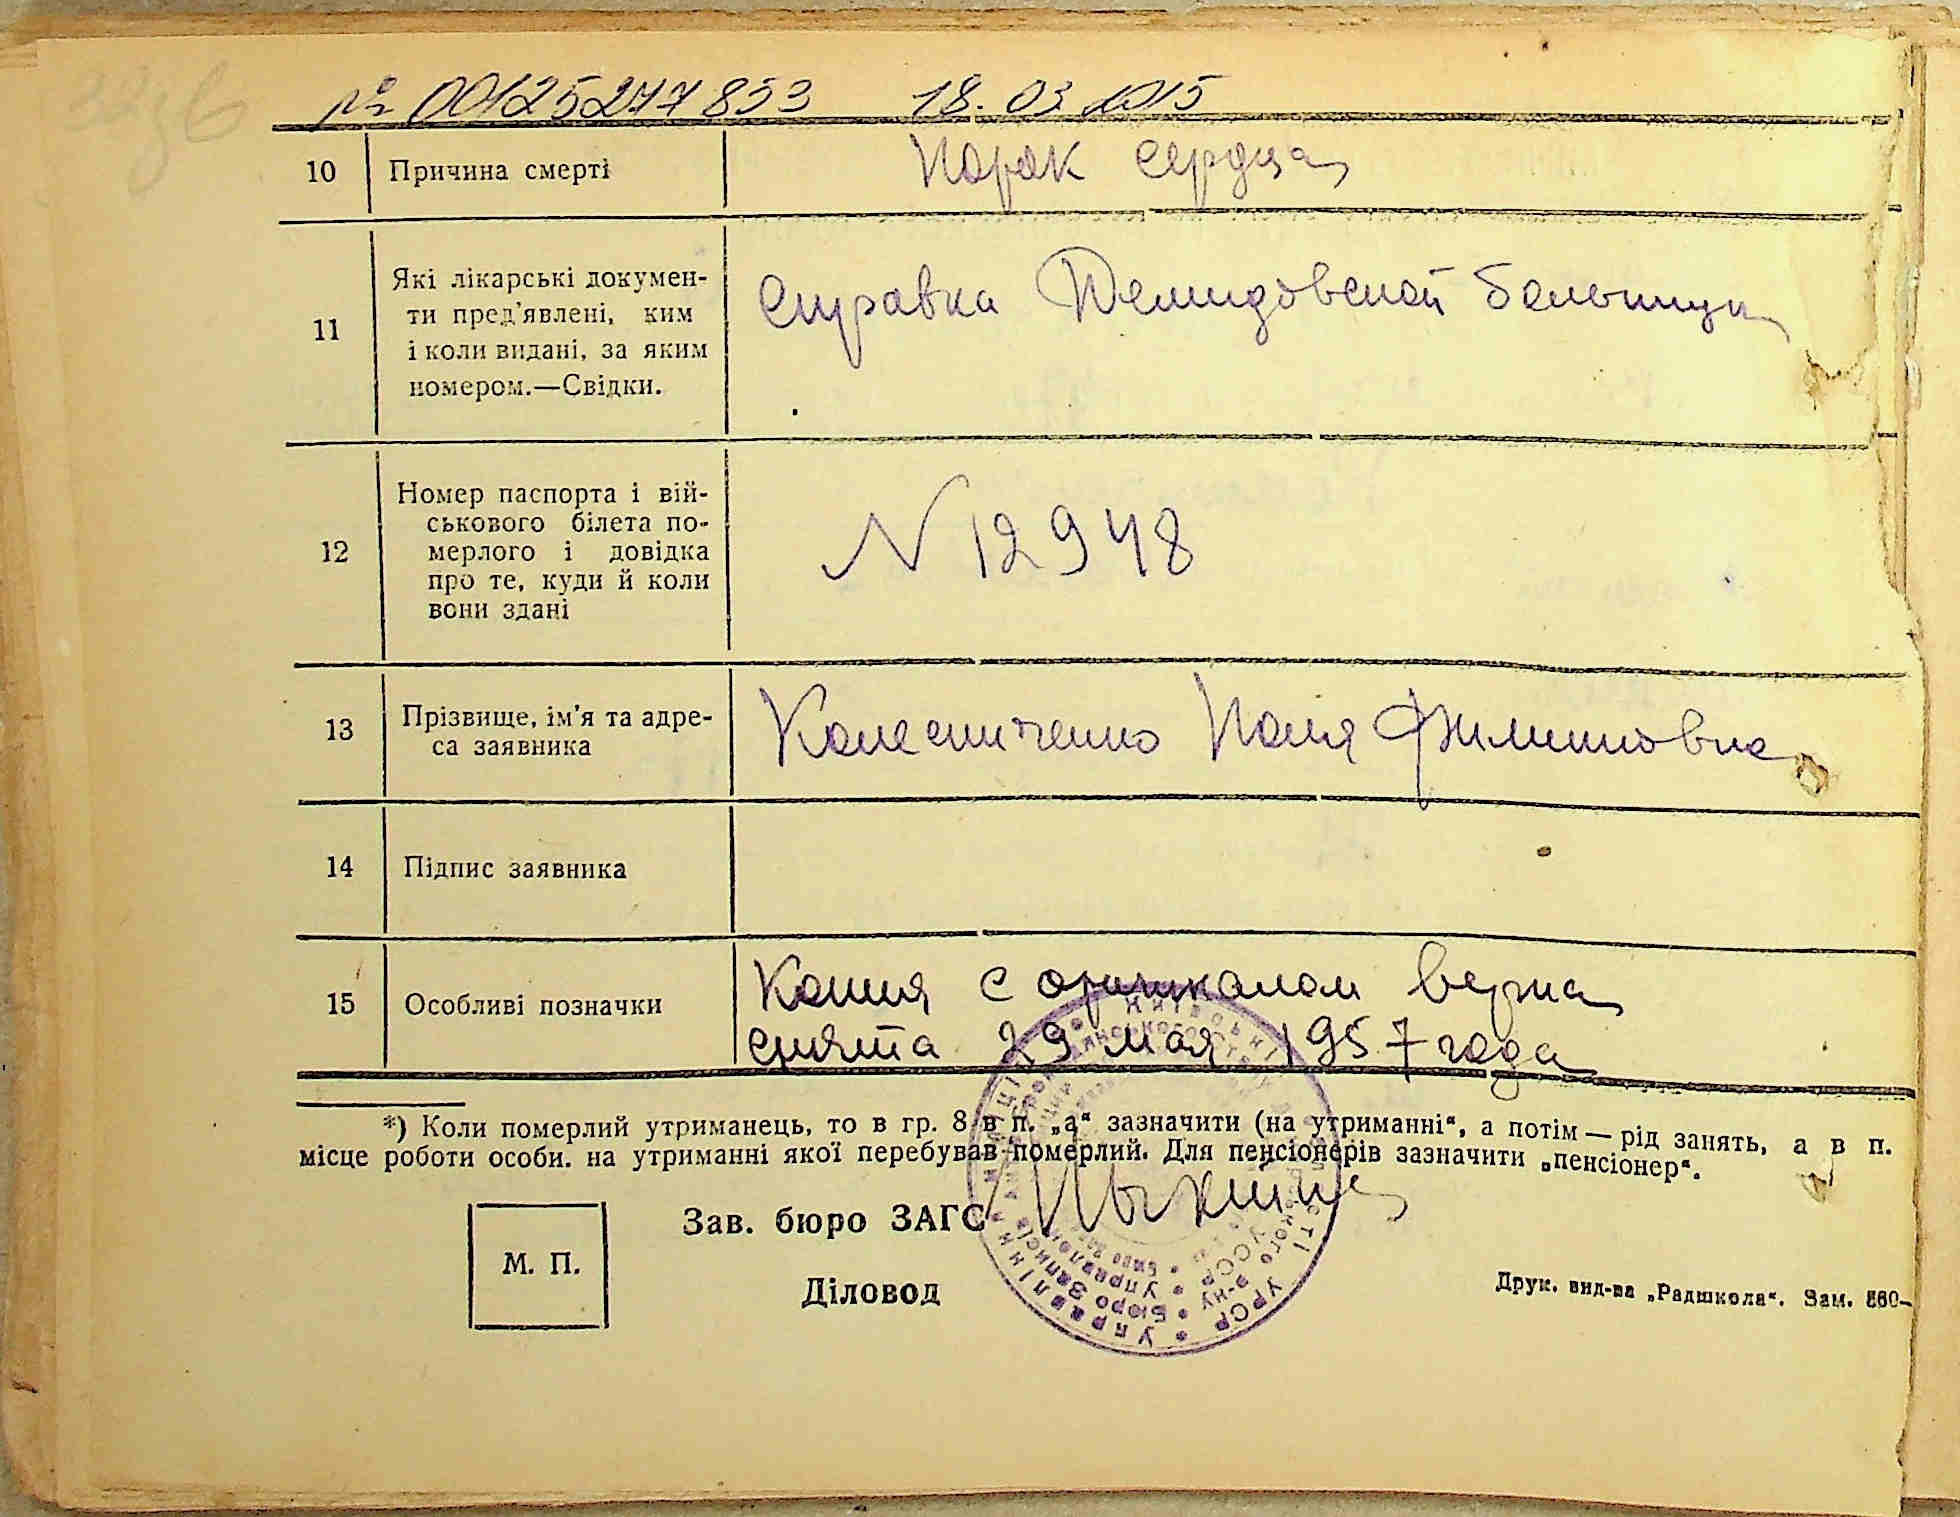 32зв
№ 00125277853 18.03.2015
10 Причина смерті Порок сердца
11 Які лікарські докумен-
ти пред’явлені, ким
і коли видані, за яким
номером.—Свідки.
справка Демидовской больницы
12 Номер паспорта і вій-
ськового білета по-
мерлого і довідка
про те, куди й коли
вони здані
N 12948
13 Прізвище, ім’я та адре-
са заявника
Колесниченко Поля Филиповна
14 Підпис заявника
15 Особливі позначки
Копия с оригиналом верна
снята 29 мая 1957 года
*) Коли померлий утриманець, то в гр. 8 в п. „а“ зазначити (на утриманні“, а потім — рід занять, а в п.
місце роботи особи. на утриманні якої перебував померлий. Для пенсіонерів зазначити „пенсіонер“.
Зав. бюро ЗАГС
М. П.
Діловод
Друк. вид-ва „Радшкола“. Зам. 860—